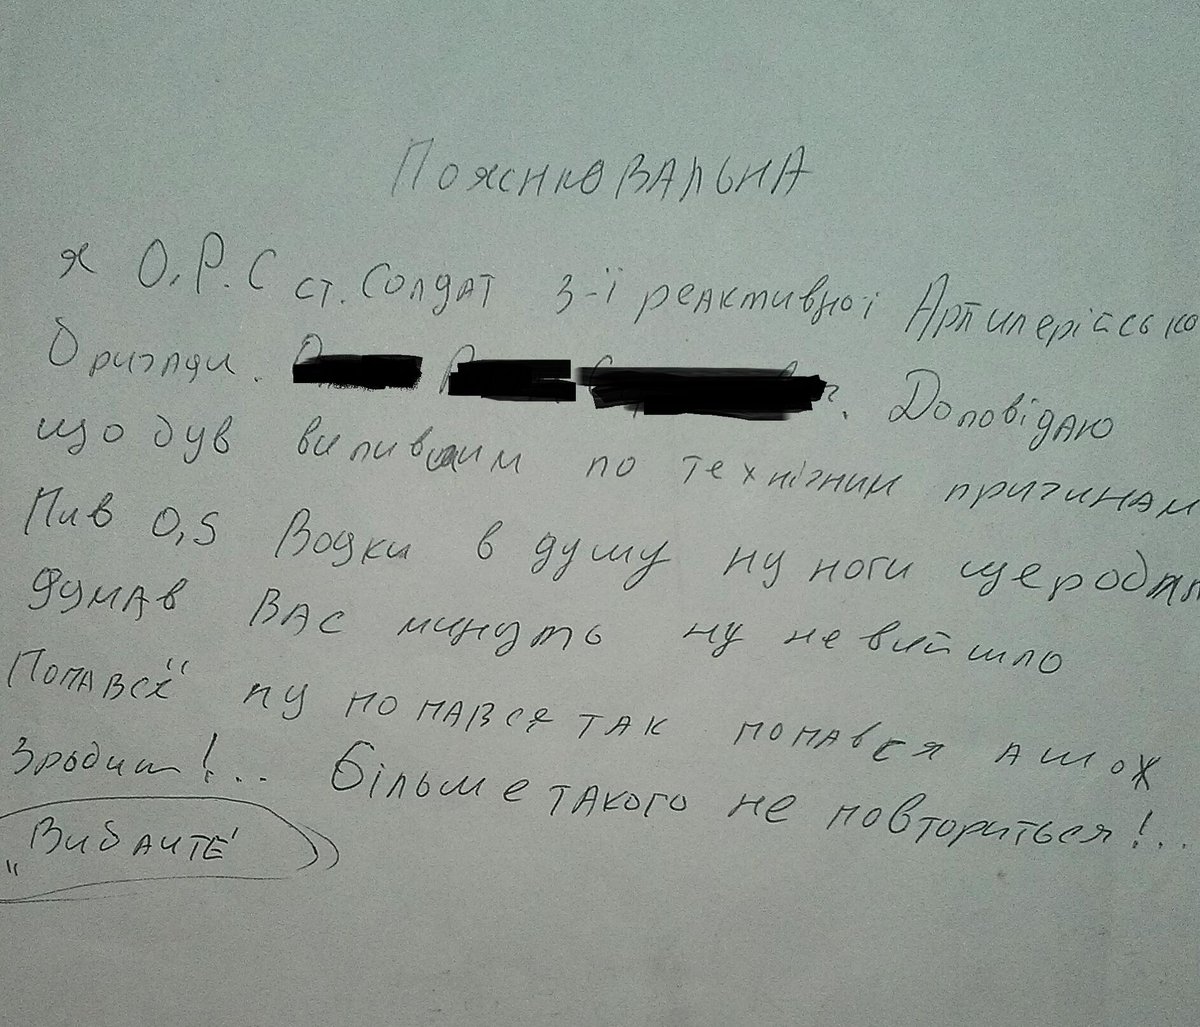 Пояснювальна
я О.Р.С ст. Солдат 3-ї реактивної Артилерійсько
бригади. Доповідаю
що був випившим по технічним причинам
Пив 0,5 Водки в душу ну ноги
думав Вас минуть ну не вийшло
Попавсь ну попався так попався а шож
Зробиш!... більше такого не повториться!...
„Вибачте"